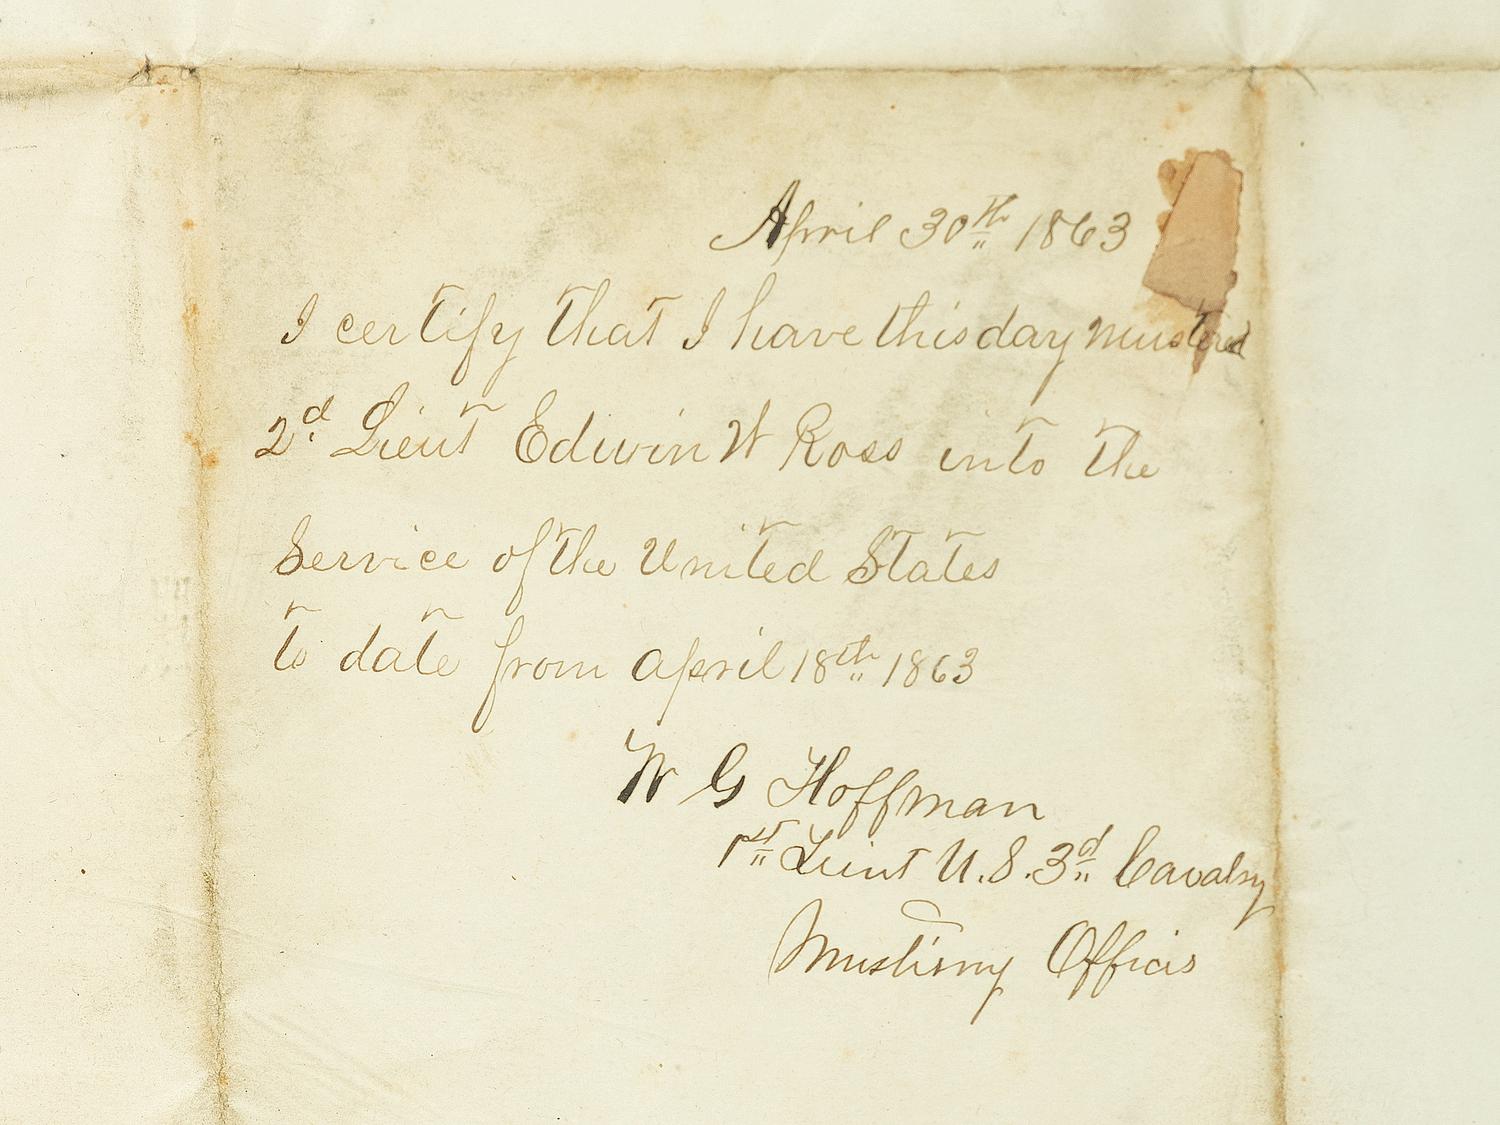 April 30th 1863
I certify that I have this day mustered
2d Lieut Edwin W Ross into the
Service of the United States
to date from April 18th 1863
W G Hoffman
1st Lieut U.S. 3d Cavalry
Mustering Officer